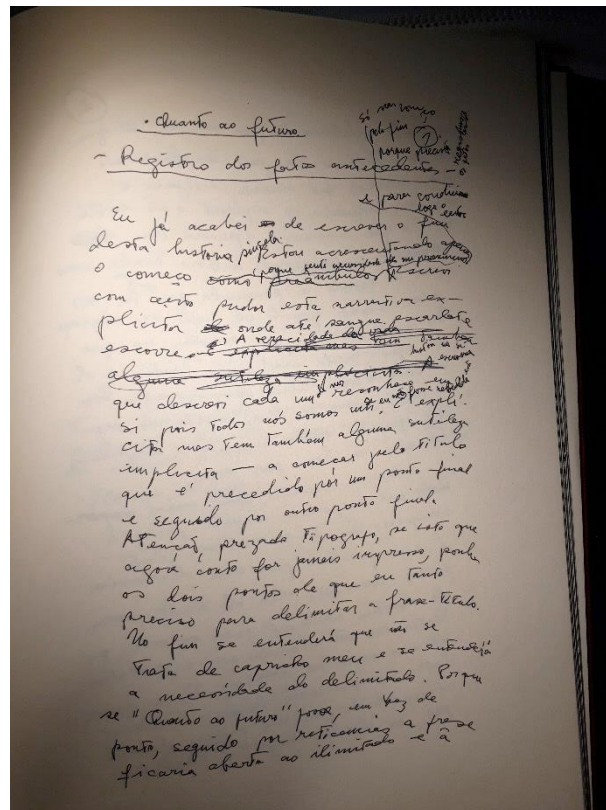 . Quanto ao futuro
só nas começo
pelo fim 1.
porque preciso
- Registro dos fatos antecedentes -
e para condivisa
Eu já acabei de escrever o fim
desta história singela. Estou acrescentando apenas
(porque senti necessidade de me
o começo como preâmbulo. Escrevo
com certo pudor esta narrativa ex-
plícita de onde até sangue escarlate
escorre. A veracidade da
é explícita mas tem também
alguma sutileza implícita. A
que descrevi cada um se reconhece em
si pois todos nós somos um. É explí-
cita mas tem também alguma sutileza
implícita — a começar pelo título
que é precedido por um ponto final
e seguido por outro ponto final.
Atenção, prezado tipógrafo, se isto que
agora conto for jamais impresso, ponha
os dois pontos de que eu tanto
preciso para delimitar a frase-título.
No fim se entenderá que não se
trata de capricho meu e se entenderá
a necessidade do delimitado. Porque
se "Quanto ao futuro" fosse, em vez de
ponto, seguido por reticências a frase
ficaria aberta ao ilimitado e à